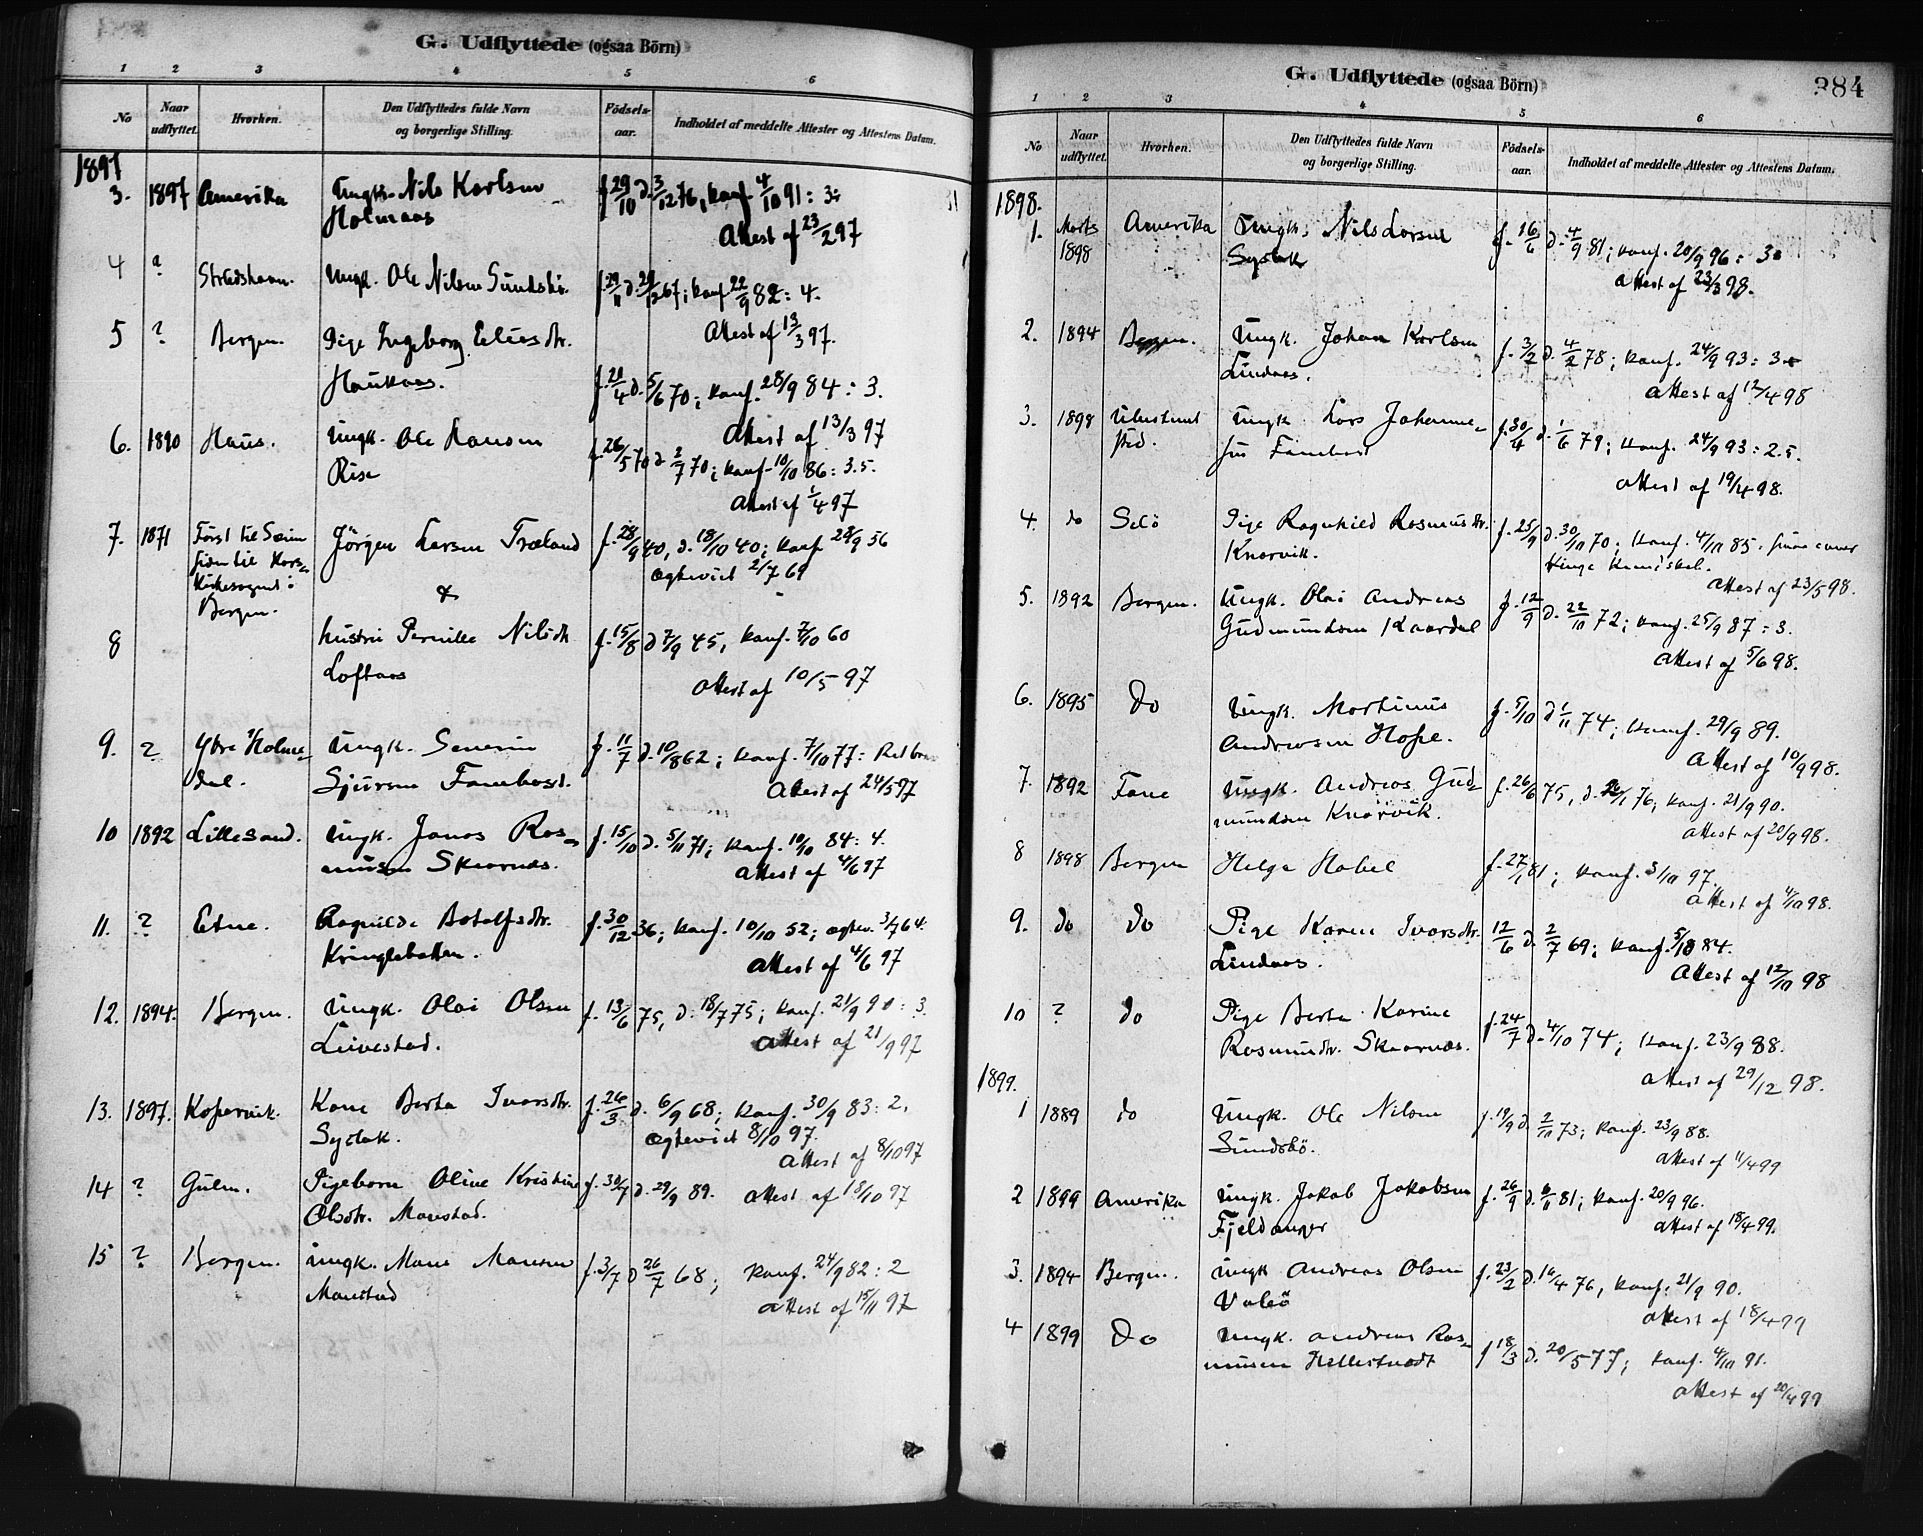 G. Udflyttede (ogsaa Börn)
1 2 3 4 5 6
No Naar udflyttet. Hvorhen. Den Udflyttedes fulde Navn og borgerlige Stilling. Födsels-aar. Indholdet af meddelte Attester og Attestens Datum.
1897
3. 1897 Amerika Ungk. Nils Karlsen f. 29/10 d. 3/12 76, konf. 4/10 91: 3
Holmaas
Attest af 23/2 97
4 ? Ungk. Ole Nilsen Sundsbö. 67; konf. 82: 4.
Attest af 13/3 97.
5 ? Bergen. Pige Ingeborg
Haukaas. f. 21/4 d. 5/6 70; konf. 28/9 84: 3.
Attest af 13/3 97
6. 1890 Haus. Ungk. Ole Hansen f. 26/5 70 d. 2/7 70; konf. 10/10 86: 3.5.
Rise
Attest af 1/4 97
7. 1871 Först til Seim Jörgen Larsen Træland f. 28/9 40, d. 18/10 40; konf. 28/9 56
siden til Kors- ægteviet 2/7 69
Kirkesogn i &
Bergen.
8 hustru Pernille Nilsdtr f. 15/8 d 7/9 45, konf. 7/10 60
Loftaas
Attest af 10/5 97
9. ? Ytre Holme- Ungk. Severin f. 11/7 d. 10/8 62; konf. 7/10 77:
dal. Sjursen Fonnebost. Attest af 24/5 97
10 1892 Lillesand. Ungk. Jonas Ras- f. 15/10 d. 5/11 71; konf. 10/10 84: 4.
musen Skaarnæs. Attest af 4/6 97
11. ? Etne. Ragnilde Botolfsdtr. f. 30/12 36; konf. 10/10 52; ægtev. 3/7 64.
Kringlebotten. Attest af 4/6 97
12. 1894. Bergen. Ungk. Olai Olsen f. 13/6 75, d. 18/7 75; konf. 21/9 90: 3.
Leivestad. Attest af 21/9 97
13. 1897. Kopervik. Kone Berta Ivarsdtr. f. 26/3 d. 6/9 68; konf. 30/9 83: 2,
Syslak. ægteviet 8/10 97.
Attest af 8/10 97
14 ? Gulen. Pigebarn Oline Kristine f. 30/7 d. 29/9 89. Attest af 18/10 97
Olsdtr. Monstad.
15 ? Bergen. Ungk. Mons Monsen f. 3/7 d 26/7 68; konf. 24/9 82: 2
Monstad Attest af 15/11 97
G. Udflyttede (ogsaa Börn) 384
1 2 3 4 5 6
No Naar udflyttet. Hvorhen. Den Udflyttedes fulde Navn og borgerlige Stilling. Födsels-aar. Indholdet af meddelte Attester og Attestens Datum.
1898.
1. Marts Amerika Ungk. Nils Larsen f. 16/6 d. 4/9 81; konf. 20/9 96: 3
1898 Syslak
Attest af 23/3 98.
2. 1894 Bergen. Ungk. Johan Karlsen f. 3/2 d. 4/2 78; konf. 24/9 93: 3
Lindaas. Attest af 12/4 98
3. 1898 Ubestemt Ungk. Lars Johanne- f. 30/4 d. 1/6 79; konf. 24/9 93: 2.5.
sted. sen Fonnebost
Attest af 19/4 98.
4. do Selö Pige Ragnhild Rasmusdtr. f. 25/9 d. 30/10 70; konf. 4/10 85.
Knarvik.
Attest af 23/5 98.
5. 1892 Bergen. Ungk. Olai Andreas f. 12/9 d. 22/10 72; konf. 25/9 87: 3.
Gudmundsen Kaardal
Attest af 5/6 98.
6. 1895 Do Ungk. Martinus f. 5/10 d 1/11 74; konf. 29/9 89.
Andreasen Hope. Attest af 10/9 98.
7. 1892 Fane Ungk. Andreas Gud- f. 26/6 75, d. 76; konf. 21/9 90.
mundsen Knarvik. Attest af 20/9 98.
8 1898 Bergen Helge Habel f. 27/1 81; konf. 3/10 97.
Attest af 4/10 98.
9. do do Pige Karen Ivarsdtr. 12/6 d. 2/7 69; konf. 5/10 84.
Lindaas. Attest af 12/10 98
10 ? do Pige Berta Karine f. 24/7 d. 4/10 74; konf. 23/9 88.
Rasmusdtr. Skaarnæs.
Attest af 29/12 98.
1899.
1 1889 do Ungk. Ole Nilsen f. 19/9 d. 2/11 73; konf. 23/9 88.
Sundsbö. Attest af 11/4 99
2 1899 Amerika Ungk. Jakob Jakobsen f. 26/9 d. 6/11 81; konf. 20/9 96.
Fjeldanger Attest af 18/4 99.
3. 1894 Bergen. Ungk Andreas Olsen f. 23/2 d. 16/4 76, konf. 21/9 90.
Valeö Attest af 18/4 99
4 1899 Do Ungk. Andreas Ras- f 18/3 d. 20/5 77; konf. 4/10 91.
musen Hellestvedt
Attest af 20/4 99